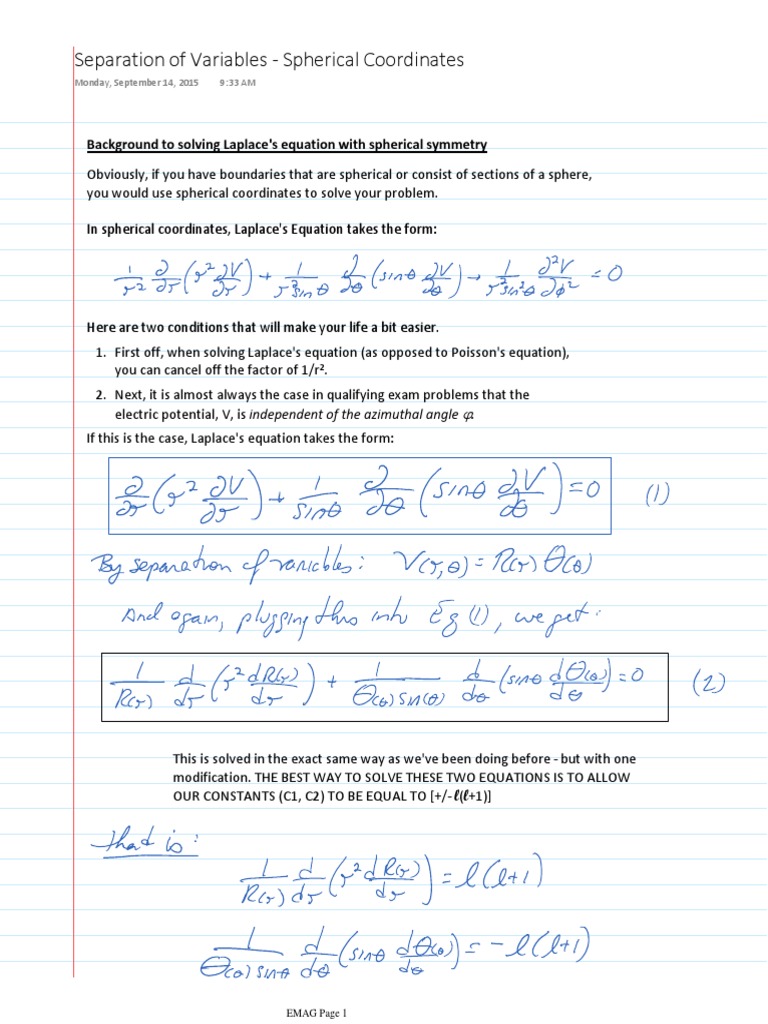 Separation of Variables - Spherical Coordinates
Monday, September 14, 2015 9:33 AM
Background to solving Laplace's equation with spherical symmetry
Obviously, if you have boundaries that are spherical or consist of sections of a sphere,
you would use spherical coordinates to solve your problem.
In spherical coordinates, Laplace's Equation takes the form:
1/r² ∂/∂r (r² ∂V/∂r) + 1/(r² sinθ) ∂/∂θ (sinθ ∂V/∂θ) + 1/(r² sin²θ) ∂²V/∂φ² = 0
Here are two conditions that will make your life a bit easier.
1. First off, when solving Laplace's equation (as opposed to Poisson's equation),
you can cancel off the factor of 1/r².
2. Next, it is almost always the case in qualifying exam problems that the
electric potential, V, is independent of the azimuthal angle φ.
If this is the case, Laplace's equation takes the form:
∂/∂r (r² ∂V/∂r) + 1/sinθ ∂/∂θ (sinθ ∂V/∂θ) = 0 (1)
By separation of variables: V(r,θ) = R(r) Θ(θ)
And again, plugging this into Eq (1), we get:
1/R(r) d/dr (r² dR(r)/dr) + 1/(Θ(θ) sin(θ)) d/dθ (sinθ dΘ(θ)/dθ) = 0 (2)
This is solved in the exact same way as we've been doing before - but with one
modification. THE BEST WAY TO SOLVE THESE TWO EQUATIONS IS TO ALLOW
OUR CONSTANTS (C1, C2) TO BE EQUAL TO [+/-ℓ(ℓ+1)]
that is:
1/R(r) d/dr (r² dR(r)/dr) = l(l+1)
1/(Θ(θ) sinθ) d/dθ (sinθ dΘ(θ)/dθ) = -l(l+1)
EMAG Page 1